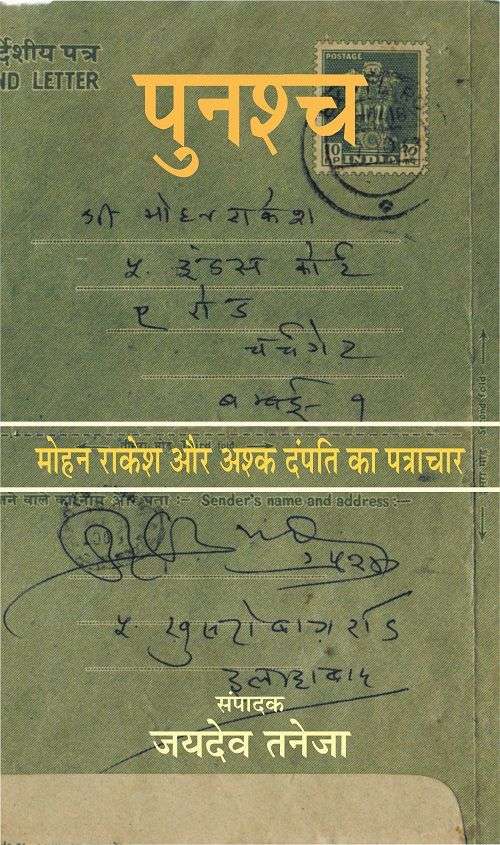 र्देशीय पत्र
ND LETTER
POSTAGE
पुनश्च
INDIA
श्री मोहन राकेश
५. इंडस कोर्ट
ए रोड
चर्चगेट
बम्बई-१
Second fold
Third fold
मोहन राकेश और अश्क दंपति का पत्राचार
Sender's name and address:—
५ खुसरोबाग़ रोड
इलाहाबाद
संपादक
जयदेव तनेजा